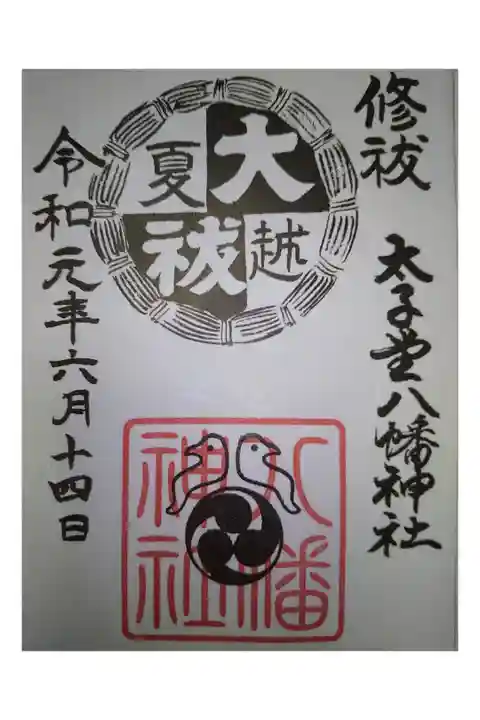 修祓 太子堂八幡神社
大祓
夏越
八幡
神社
令和元年六月十四日